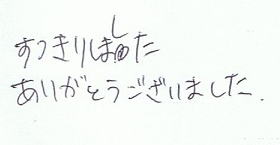 すっきりしました
ありがとうございました.